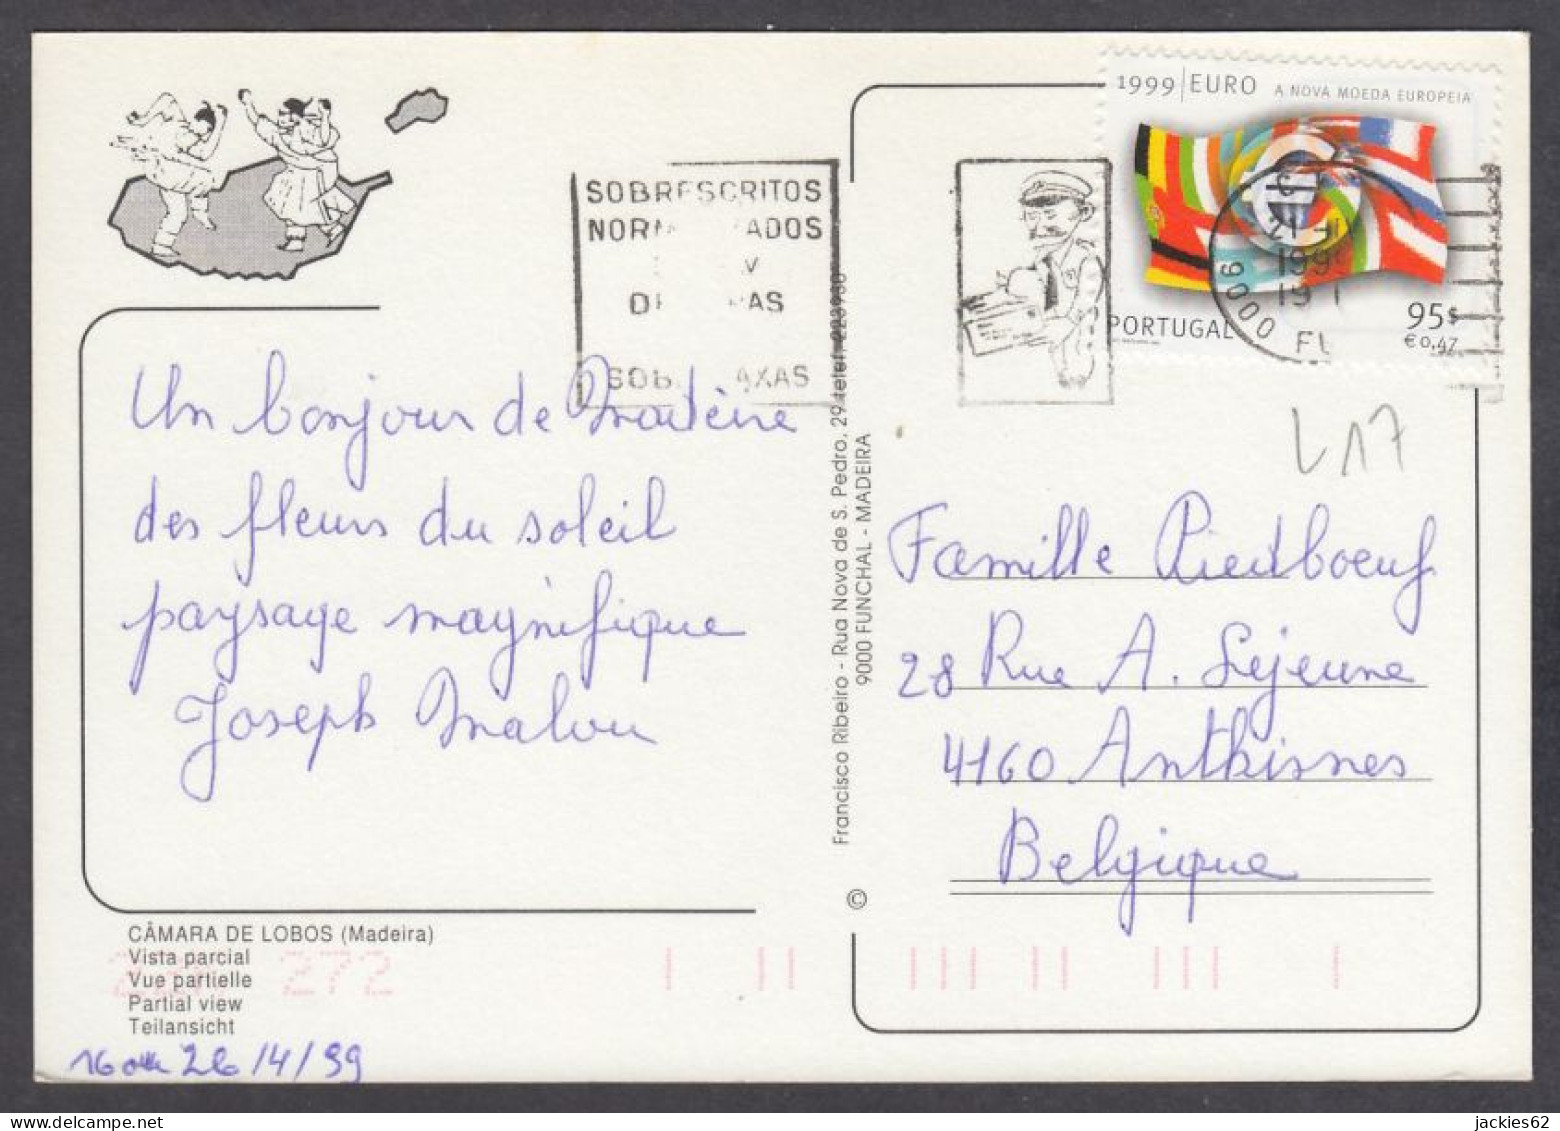 1999 EURO A NOVA MOEDA EUROPEIA
PORTUGAL
95$
€0,47
SOBRESCRITOS
9000
L17
Un bonjour de Madeire
des fleurs du soleil
paysage magnifique
Joseph Malou
Francisco Ribeiro - Rua Nova de S. Pedro, 29 telef. 223930
9000 FUNCHAL - MADEIRA
©
Famille Piedboeuf
28 Rue A. Lejeune
4160 Anthisnes
Belgique
CÂMARA DE LOBOS (Madeira)
Vista parcial
Vue partielle
Partial view
Teilansicht
272
26/4/99
jackies62